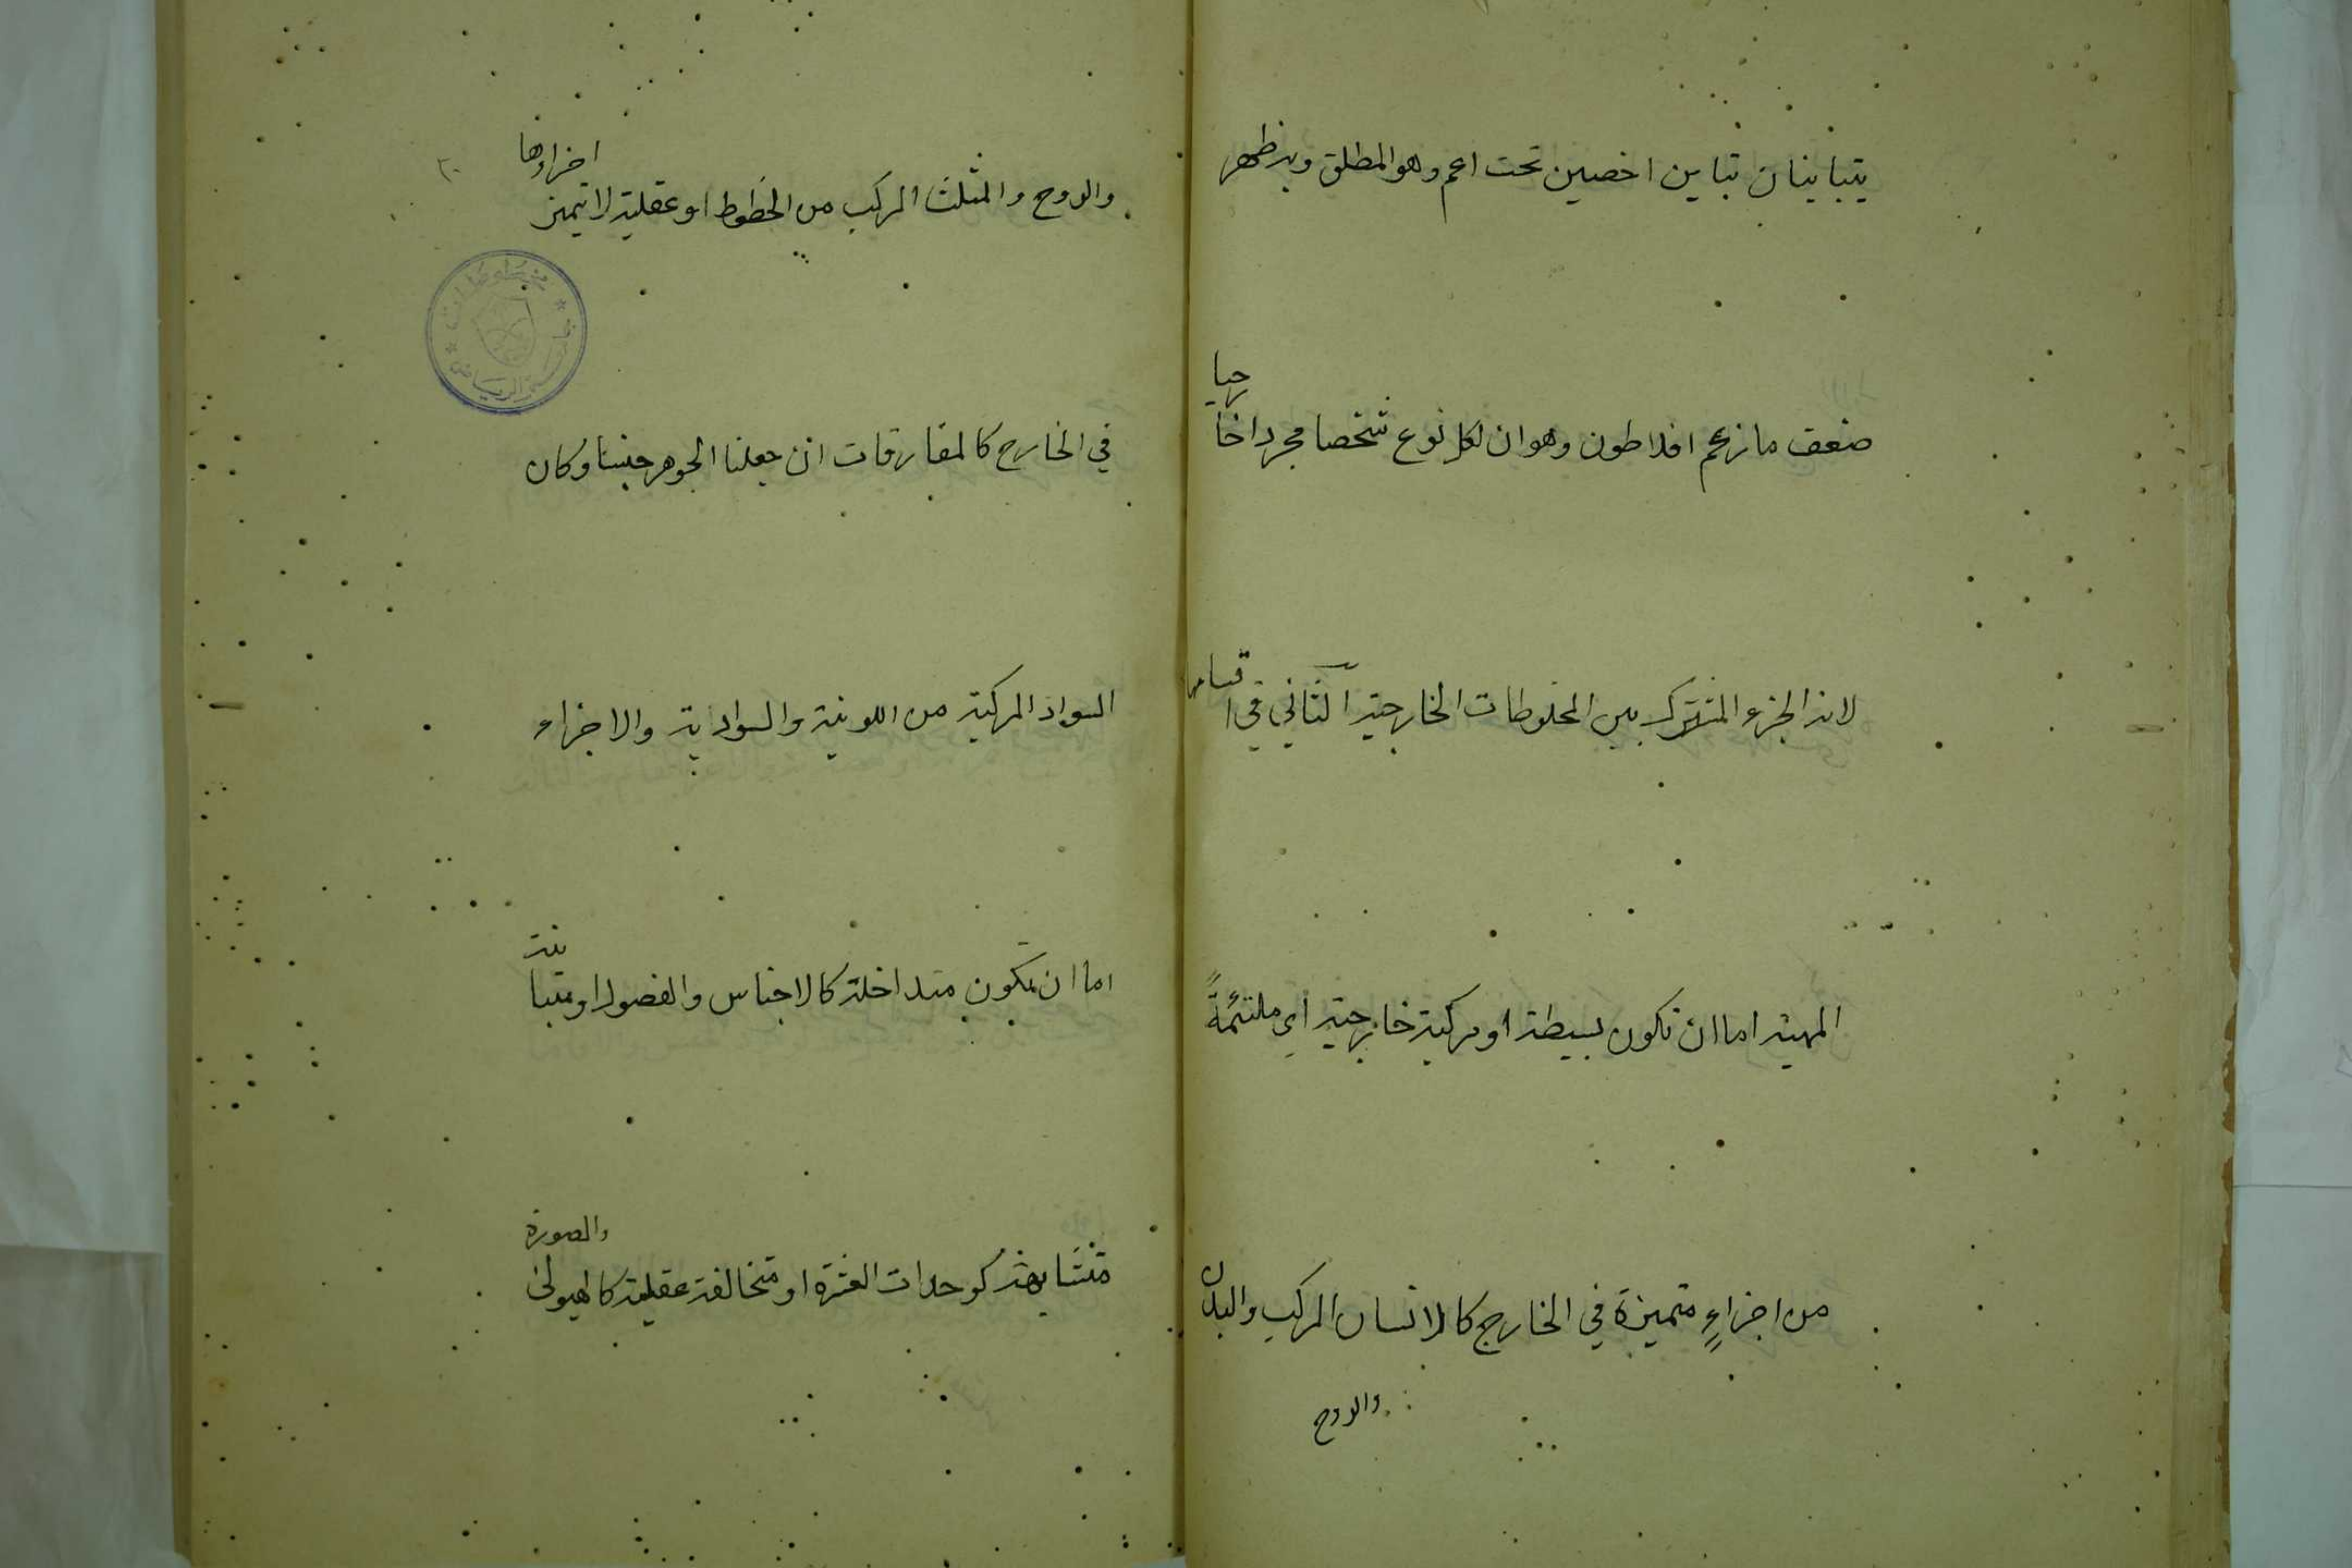 يتباينان تباين اخصين تحت اعم وهو المطلق وبه ظهر
ضعف ما زعم افلاطون وهو ان لكل نوع شخصا مجردا خارجيا
لانه الجزء المشترك بين المخلوطات الخارجية الثاني في اقسامها
المهية اما ان تكون بسيطة او مركبة خارجية اي ملتئمةً
من اجزاءٍ متميزة في الخارج كالانسان المركب والبدن
والروح
والروح والمثلث المركب من الخطوط او عقلية لا تتميز اجزاؤها
في الخارج كالمفارقات ان جعلنا الجوهر جنسا وكان
السواد المركبة من اللونية والسوادية والاجزاء
اما ان تكون متداخلة كالاجناس والفصول او متباينة
متشابهة كوحدات العشرة او متخالفة عقلية كالهيولى والصورة
مخطوطات
الرياض